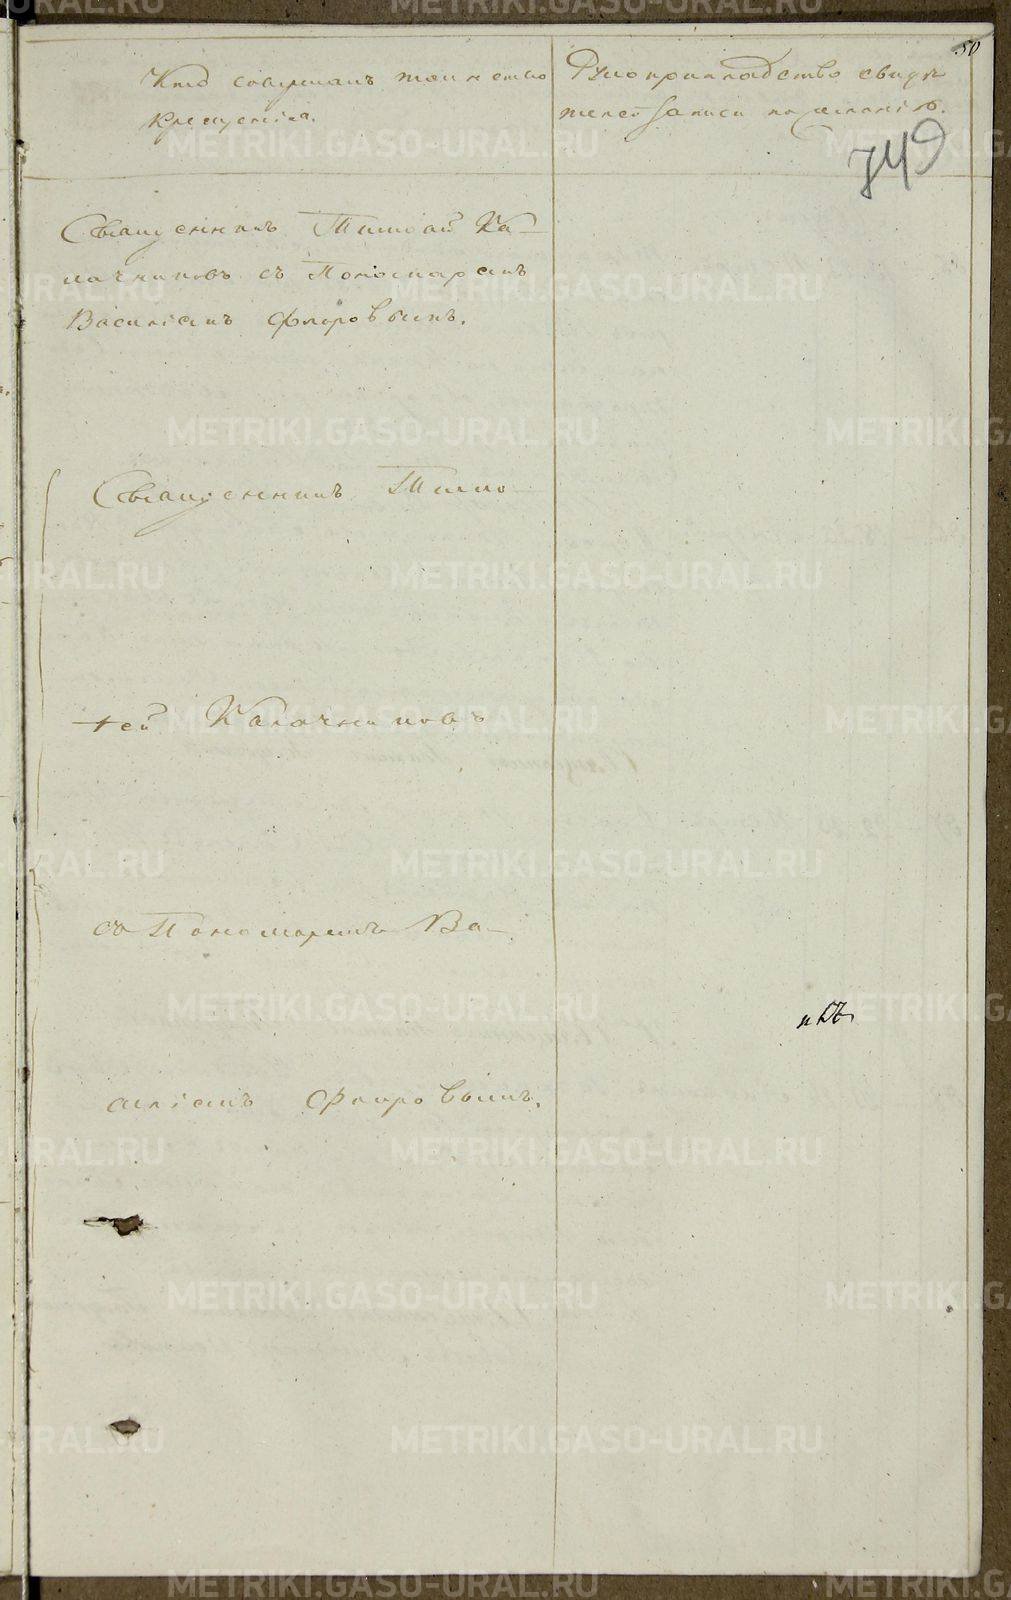 50
Кто совершалъ таинство
Крещенiя.
Рукоприкладство свидѣ
телей записи по желанiю.
749
Священникъ Тимофей Ка-
лачниковъ съ Пономаремъ
Василiемъ Флоровымъ.
Священникъ Тимо-
фей Калачниковъ
съ Пономаремъ Ва-
силiемъ Флоровымъ.
METRIKI.GASO-URAL.RU